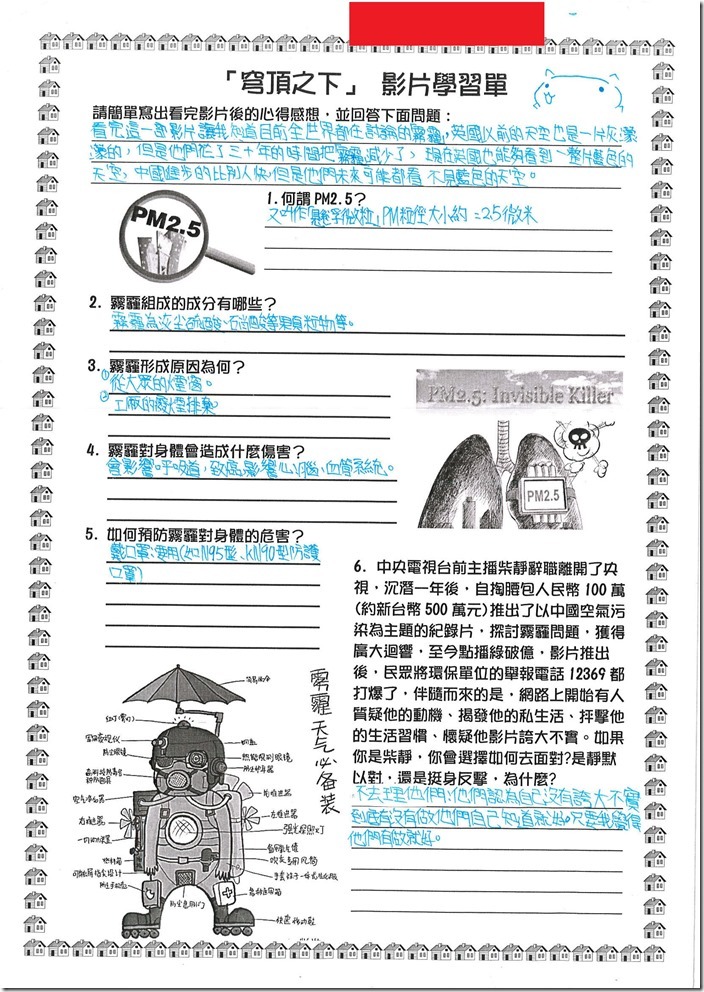 「穹頂之下」 影片學習單
請簡單寫出看完影片後的心得感想，並回答下面問題：
看完這一部影片讓我知道目前全世界都在討論的霧霾，英國以前的天空也是一片灰濛
濛的，但是他們花了三十年的時間把霧霾減少了，現在英國也能夠看到一整片藍色的
天空，中國進步的比別人快，但是他們未來可能都看不見藍色的天空。
PM2.5
1.何謂 PM2.5？
又叫作「懸浮微粒」PM粒徑大小約=2.5微米
2. 霧霾組成的成分有哪些？
霧霾為灰尘硫酸、硝酸等顆粒物等。
3. 霧霾形成原因為何？
①從大眾的煙囪。
②工廠的廢煙排氣
PM2.5: Invisible Killer
4. 霧霾對身體會造成什麼傷害？
會影響呼吸道，致癌、影響心、腦、血管系統。
PM2.5
5. 如何預防霧霾對身體的危害？
戴口罩、要用(如N95型、KN90型防護
口罩)
6. 中央電視台前主播柴靜辭職離開了央
視，沉潛一年後，自掏腰包人民幣 100 萬
(約新台幣 500 萬元)推出了以中國空氣污
染為主題的紀錄片，探討霧霾問題，獲得
廣大迴響，至今點播綠破億，影片推出
後，民眾將環保單位的舉報電話 12369 都
打爆了，伴隨而來的是，網路上開始有人
質疑他的動機、揭發他的私生活、抨擊他
的生活習慣、懷疑他影片誇大不實。如果
你是柴靜，你會選擇如何去面對?是靜默
以對，還是挺身反擊，為什麼?
不去理他們，他們認為自己沒有誇大不實
到底有沒有做他們自己知道就好。只要我覺得
他們有做就好。
雾霾天气必备装